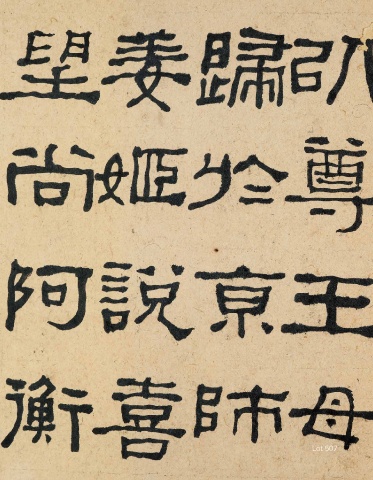 以尊王母
歸於京師
姜姬說喜
望尚阿衡
Lot 507